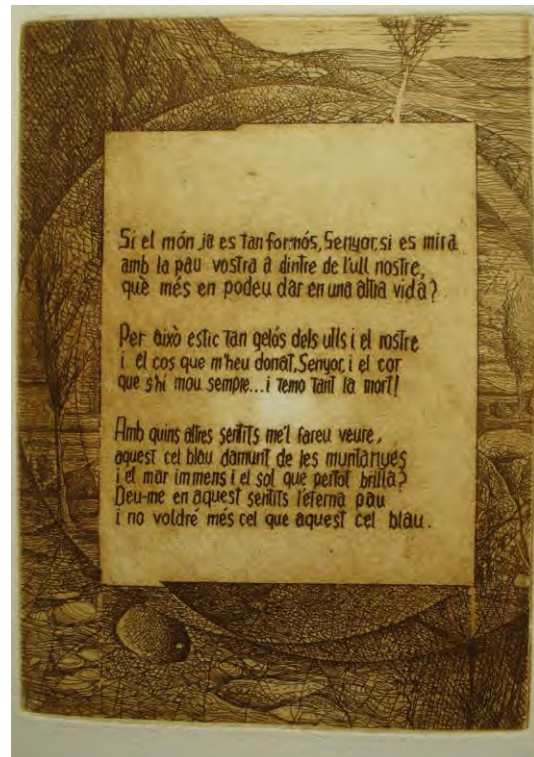 Si el món ja es tan formós, Senyor, si es mira
amb la pau vostra a dintre de l'ull nostre,
què més en podeu dar en una altra vida?
Per això estic tan gelós dels ulls i el rostre
i el cos que m'heu donat, Senyor, i el cor
que s'hi mou sempre...i temo tant la mort!
Amb quins altres sentits me'l fareu veure,
aquest cel blau damunt de les muntanyes
i el mar immens i el sol que pertot brilla?
Deu-me en aquest sentits l'eterna pau
i no voldré més cel que aquest cel blau.